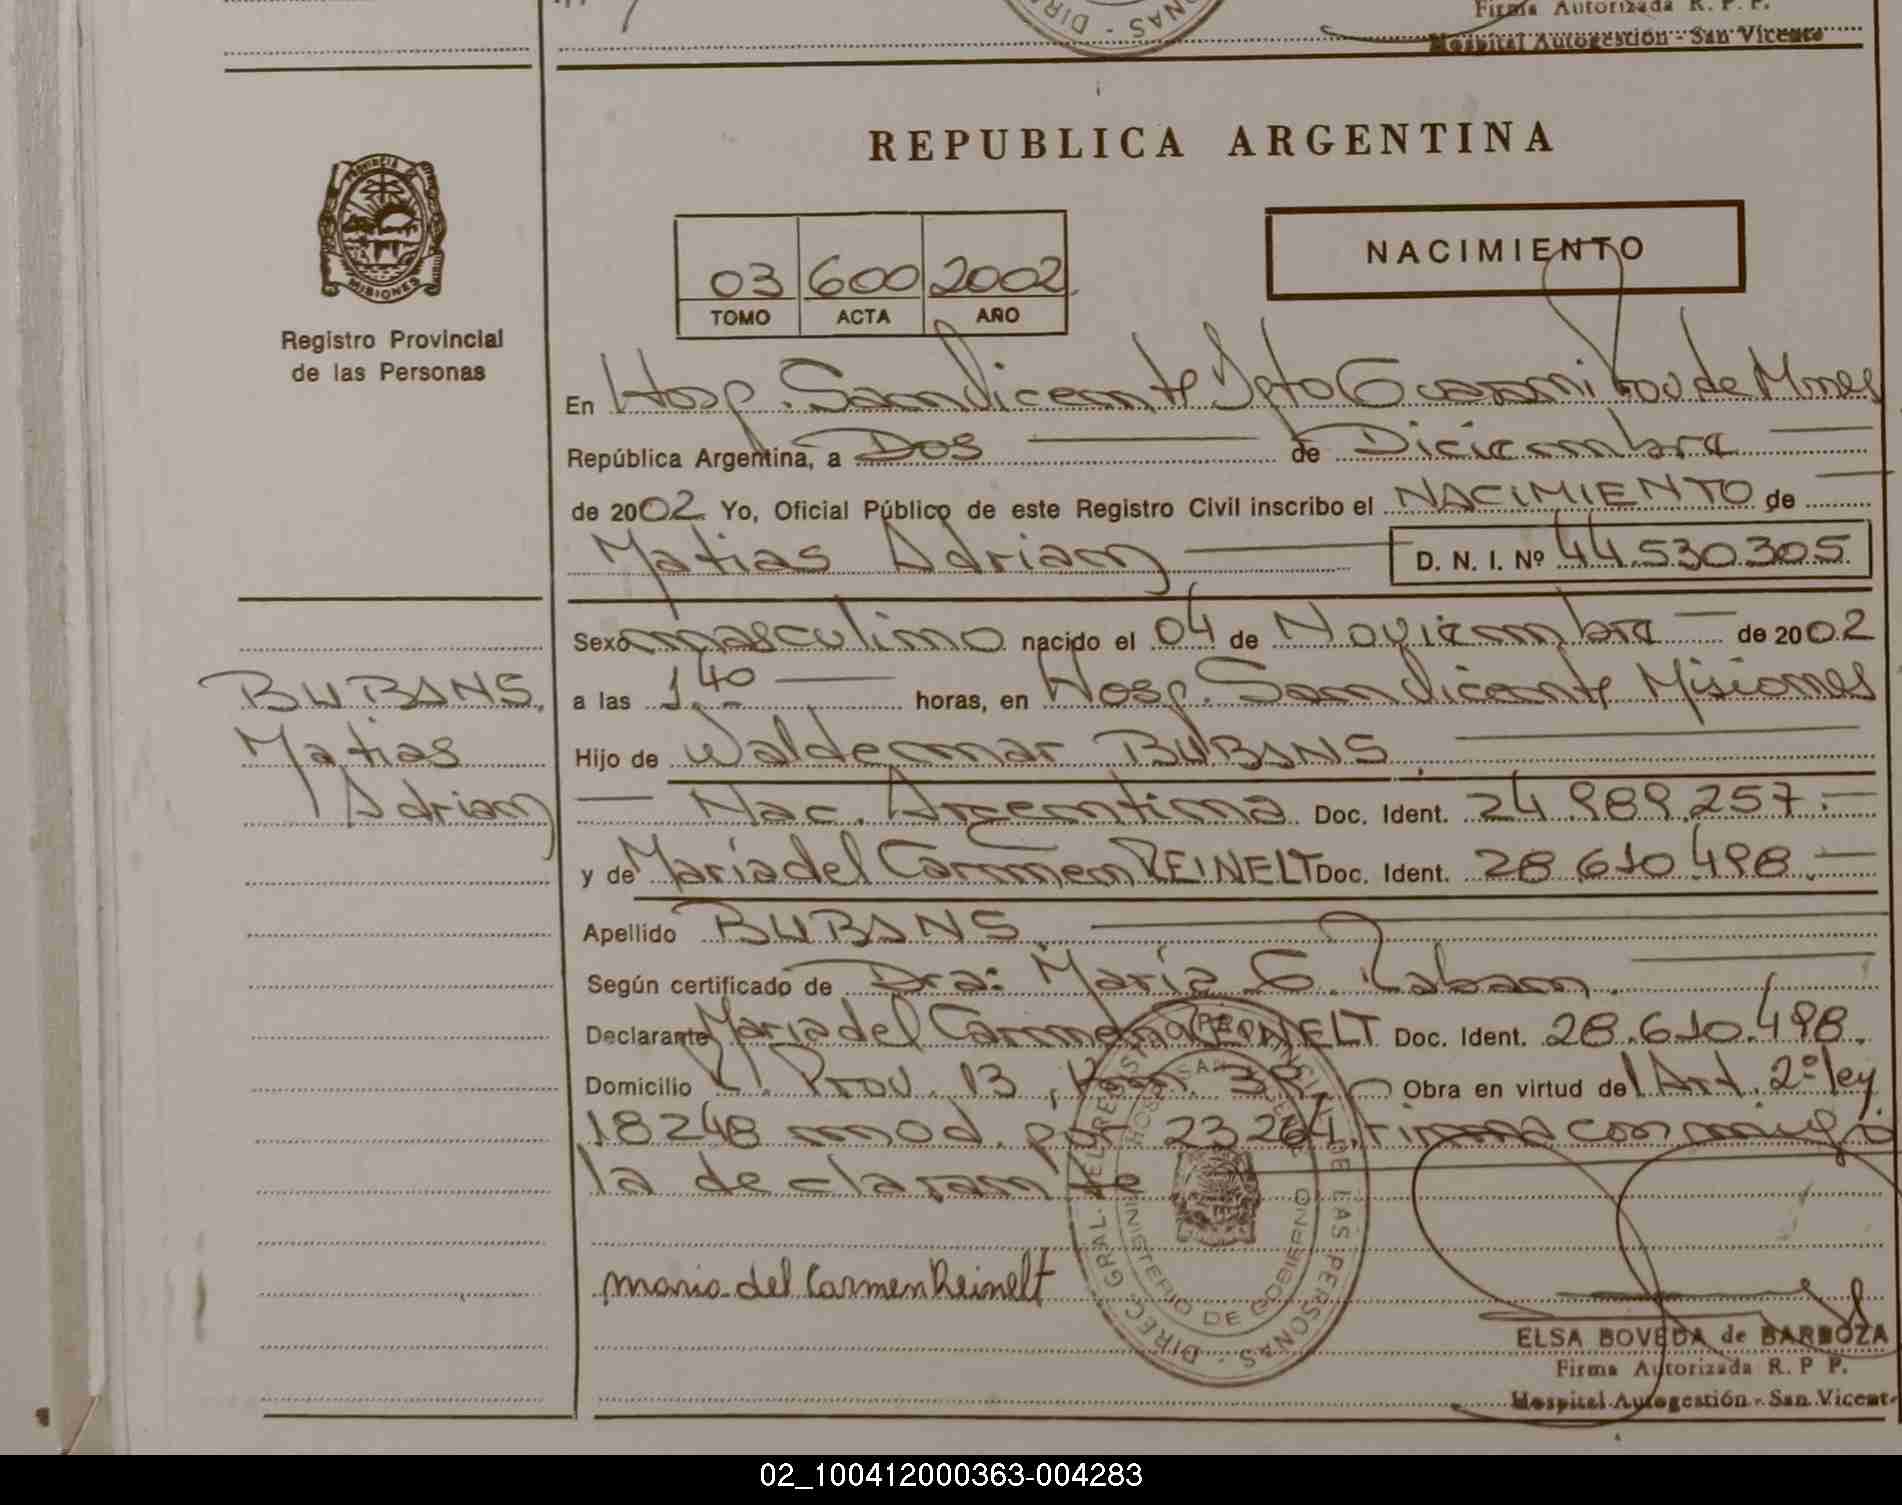 Firma Autorizada R. P. P.
Hospital Autogestión - San Vicente
REPUBLICA ARGENTINA
PROVINCIA DE MISIONES
Registro Provincial
de las Personas
03 600 2002
TOMO ACTA AÑO
NACIMIENTO
En Hosp. San Vicente Dpto Guarani Prov de Mnes
República Argentina, a Dos de Diciembre
de 2002 Yo, Oficial Público de este Registro Civil inscribo el NACIMIENTO de
Matias Adrian D. N. I. Nº 44.530.305
Sexo masculino nacido el 04 de Noviembre de 2002
a las 1,40 horas, en Hosp. San Vicente Misiones
Hijo de Waldemar BUBANS
Nac. Argentina Doc. Ident. 24.989.257.-
y de Maria del Carmen REINELT Doc. Ident. 28.610.498.-
Apellido BUBANS
Según certificado de Dra: Maria G. Laban
Declarante Maria del Carmen REINELT Doc. Ident. 28.610.498.
Domicilio Prov. 13, Km. Obra en virtud del Art. 2º ley
18248 mod. por 23264. Firma conmigo
la declarante
BUBANS,
Matias
Adrian
maria del Carmen Reinelt
DIREC. GRAL. DEL REGISTRO PROVINCIAL DE LAS PERSONAS
HOSP. SAN VICENTE
MINISTERIO DE GOBIERNO
ELSA BOVEDA de BARBOZA
Firma Autorizada R. P P.
Hospital Autogestión - San Vicente
02_100412000363-004283